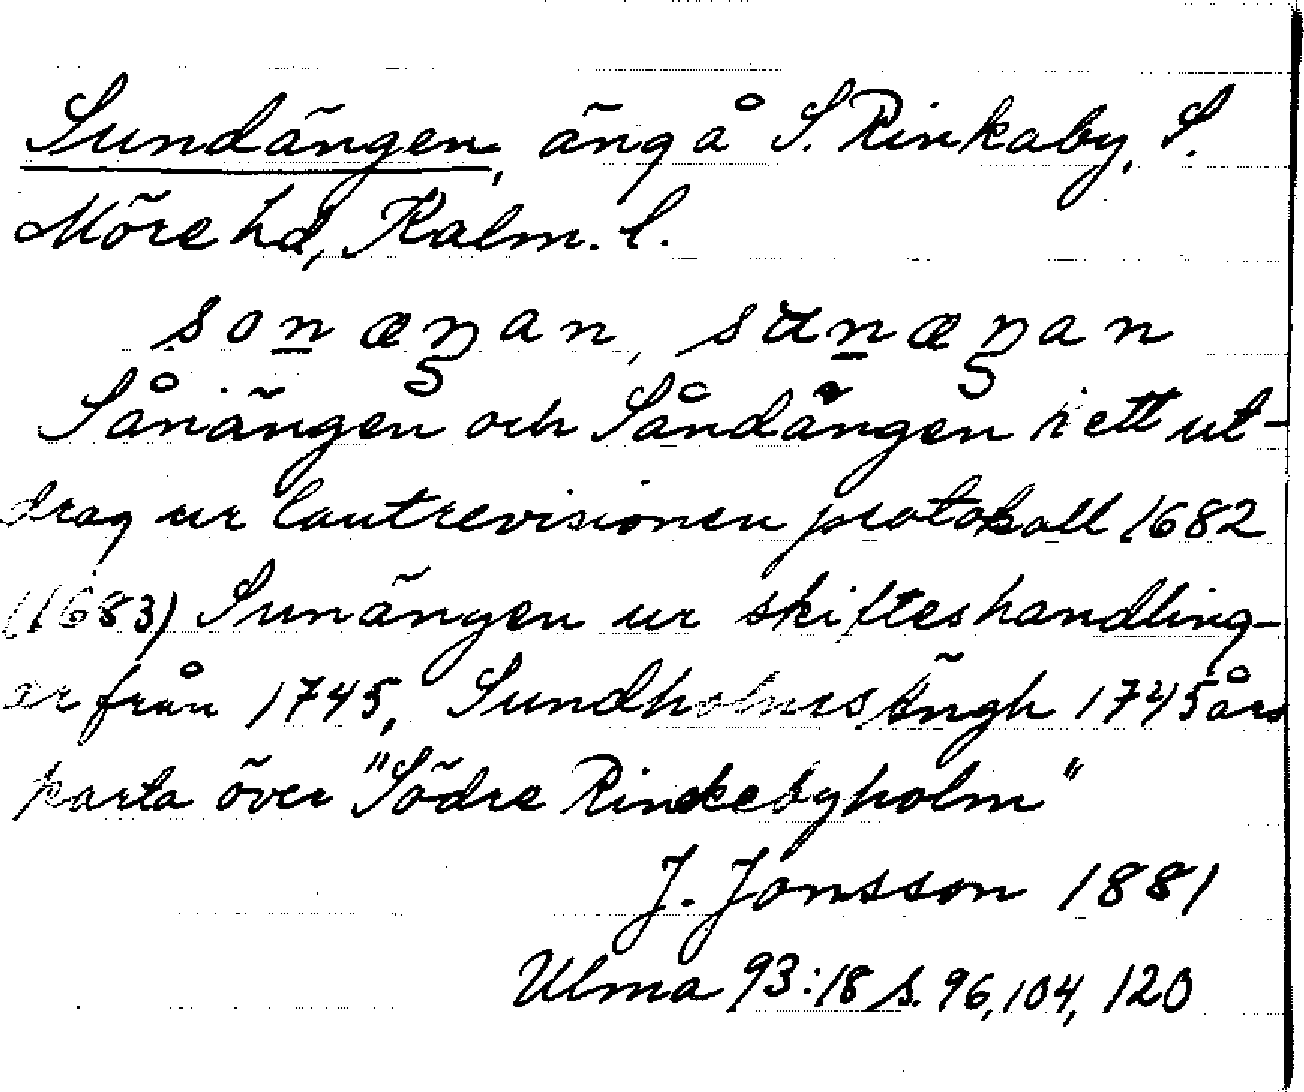 Sundängen, äng å S. Rinkaby, S.
Möre hd, Kalm. l.
son̲æŋan, sɑn̲æŋan
Sånängen och Såndängen i ett ut-
drag ur lantrevisionen protokoll 1682
(1683) Sunängen ur skifteshandling-
ar från 1745, Sundholmes Ängh 1745 års
karta över "Södre Rinckebyholm"
J. Jonsson 1881
Ulma 93:18 s. 96, 104, 120